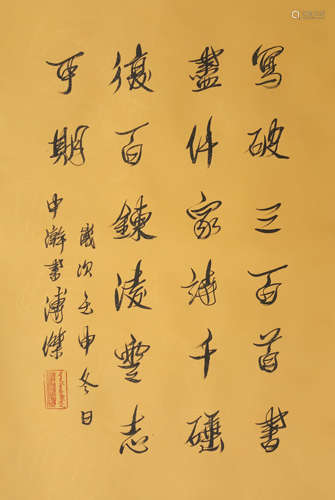 寫破三百首書
盡件家詩千
復百鍊凌雲志
可期
歲次壬申冬日
中澣書溥傑